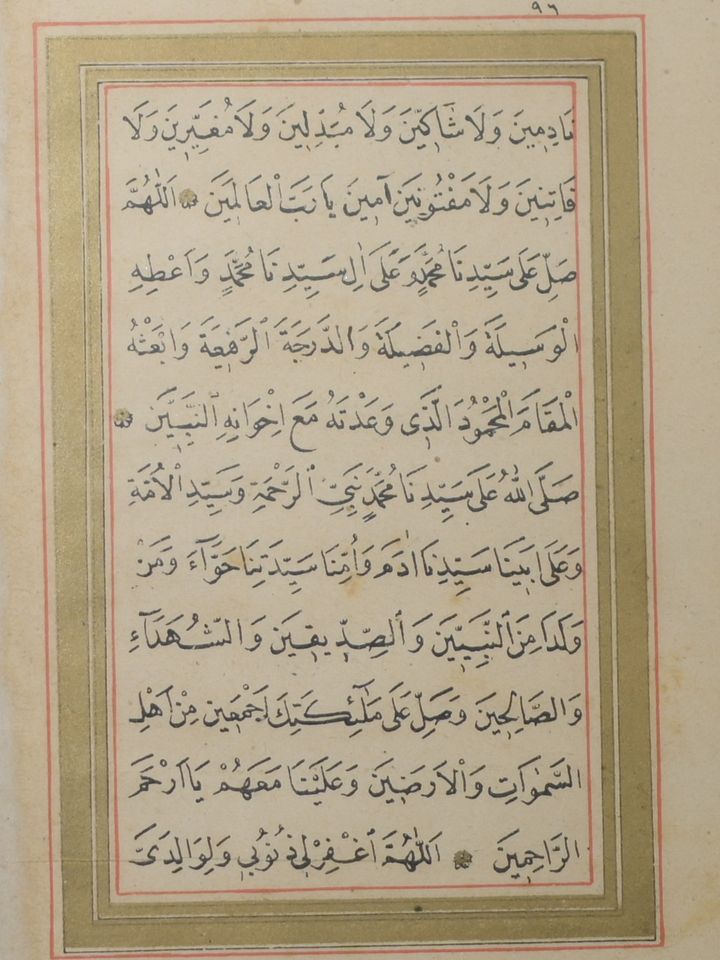 ٩٦
نَادِمِينَ وَلَا شَاكِّينَ وَلَا مُبَدِّلِينَ وَلَا مُغَيِّرِينَ وَلَا
فَاتِنِينَ وَلَا مَفْتُونِينَ آمِينَ يَا رَبَّ الْعَالَمِينَ اَللّٰهُمَّ
صَلِّ عَلَى سَيِّدِنَا مُحَمَّدٍ وَعَلَى اٰلِ سَيِّدِنَا مُحَمَّدٍ وَاَعْطِهِ
الْوَسِيلَةَ وَالْفَضِيلَةَ وَالدَّرَجَةَ الرَّفِيعَةَ وَابْعَثْهُ
الْمَقَامَ الْمَحْمُودَ الَّذِى وَعَدْتَهُ مَعَ اِخْوَانِهِ النَّبِيِّينَ
صَلَّى اللّٰهُ عَلَى سَيِّدِنَا مُحَمَّدٍ نَبِيِّ الرَّحْمَةِ وَسَيِّدِ الْاُمَّةِ
وَعَلَى اَبِينَا سَيِّدِنَا اٰدَمَ وَاُمِّنَا سَيِّدَتِنَا حَوَّآءَ وَمَنْ
وَلَدَا مِنَ النَّبِيِّينَ وَالصِّدِّيقِينَ وَالشُّهَدَآءِ
وَالصَّالِحِينَ وَصَلِّ عَلَى مَلٰٓئِكَتِكَ اَجْمَعِينَ مِنْ اَهْلِ
السَّمٰوَاتِ وَالْاَرَضِينَ وَعَلَيْنَا مَعَهُمْ يَا اَرْحَمَ
الرَّاحِمِينَ اَللّٰهُمَّ اغْفِرْ لِي ذُنُوبِي وَلِوَالِدَىَّ